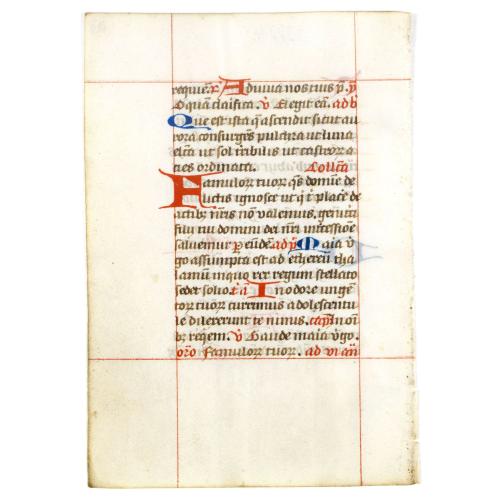 requiem. Adiuua nos tuis p̄.
O quā clarifica. v̄ Elegit eā. ad b
Que est ista q̄ ascendit sicut au
rora consurgēs pulchra ut luna
elcā ut sol tribilis ut castror̄ a
cies ordinata. Collcā
Famulor̄ tuor̄ q̄s domine de
lictis ignosce ut q̄ t̄ placere de
actib; nr̄is nō valemus, genit̄
filii tui domini dei nr̄i intcessione
saluemur p̄ eūdē. ad p̄ Maria v̄
go assumpta est ad ethereū tha
lamū in quo rex regum stellato
sedet solio. t̄a In odore ungēt
tor̄ tuor̄ currimus adolescentu
le dilexerunt te nimis. cap̄ In oīi
b; reqem. v̄ Gaude maria v̄go.
or̄o Famulor̄ tuor̄. ad vi an̄